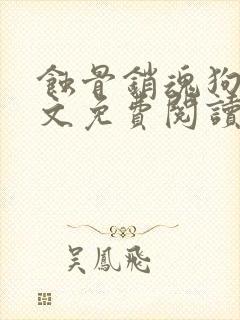 蝕骨銷魂狗
文免費閱讀
吳鳳飛